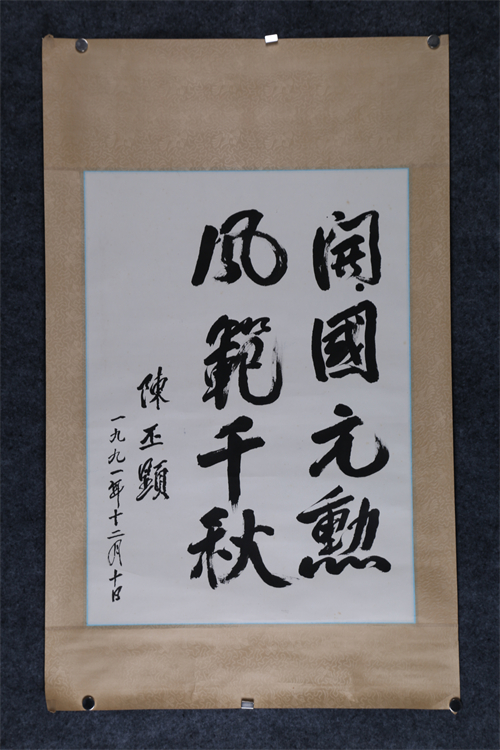 開國元勳
風範千秋
陳丕顯
一九九一年十二月十日